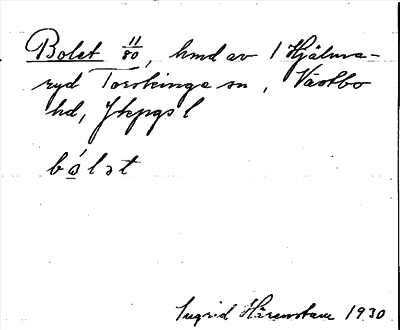 Bolet 11/80, hmd av 1 Hjälma-
ryd Torskinge sn, Västbo
hd, Jkpgs l
bó̤lət
Ingrid Härenstam 1930